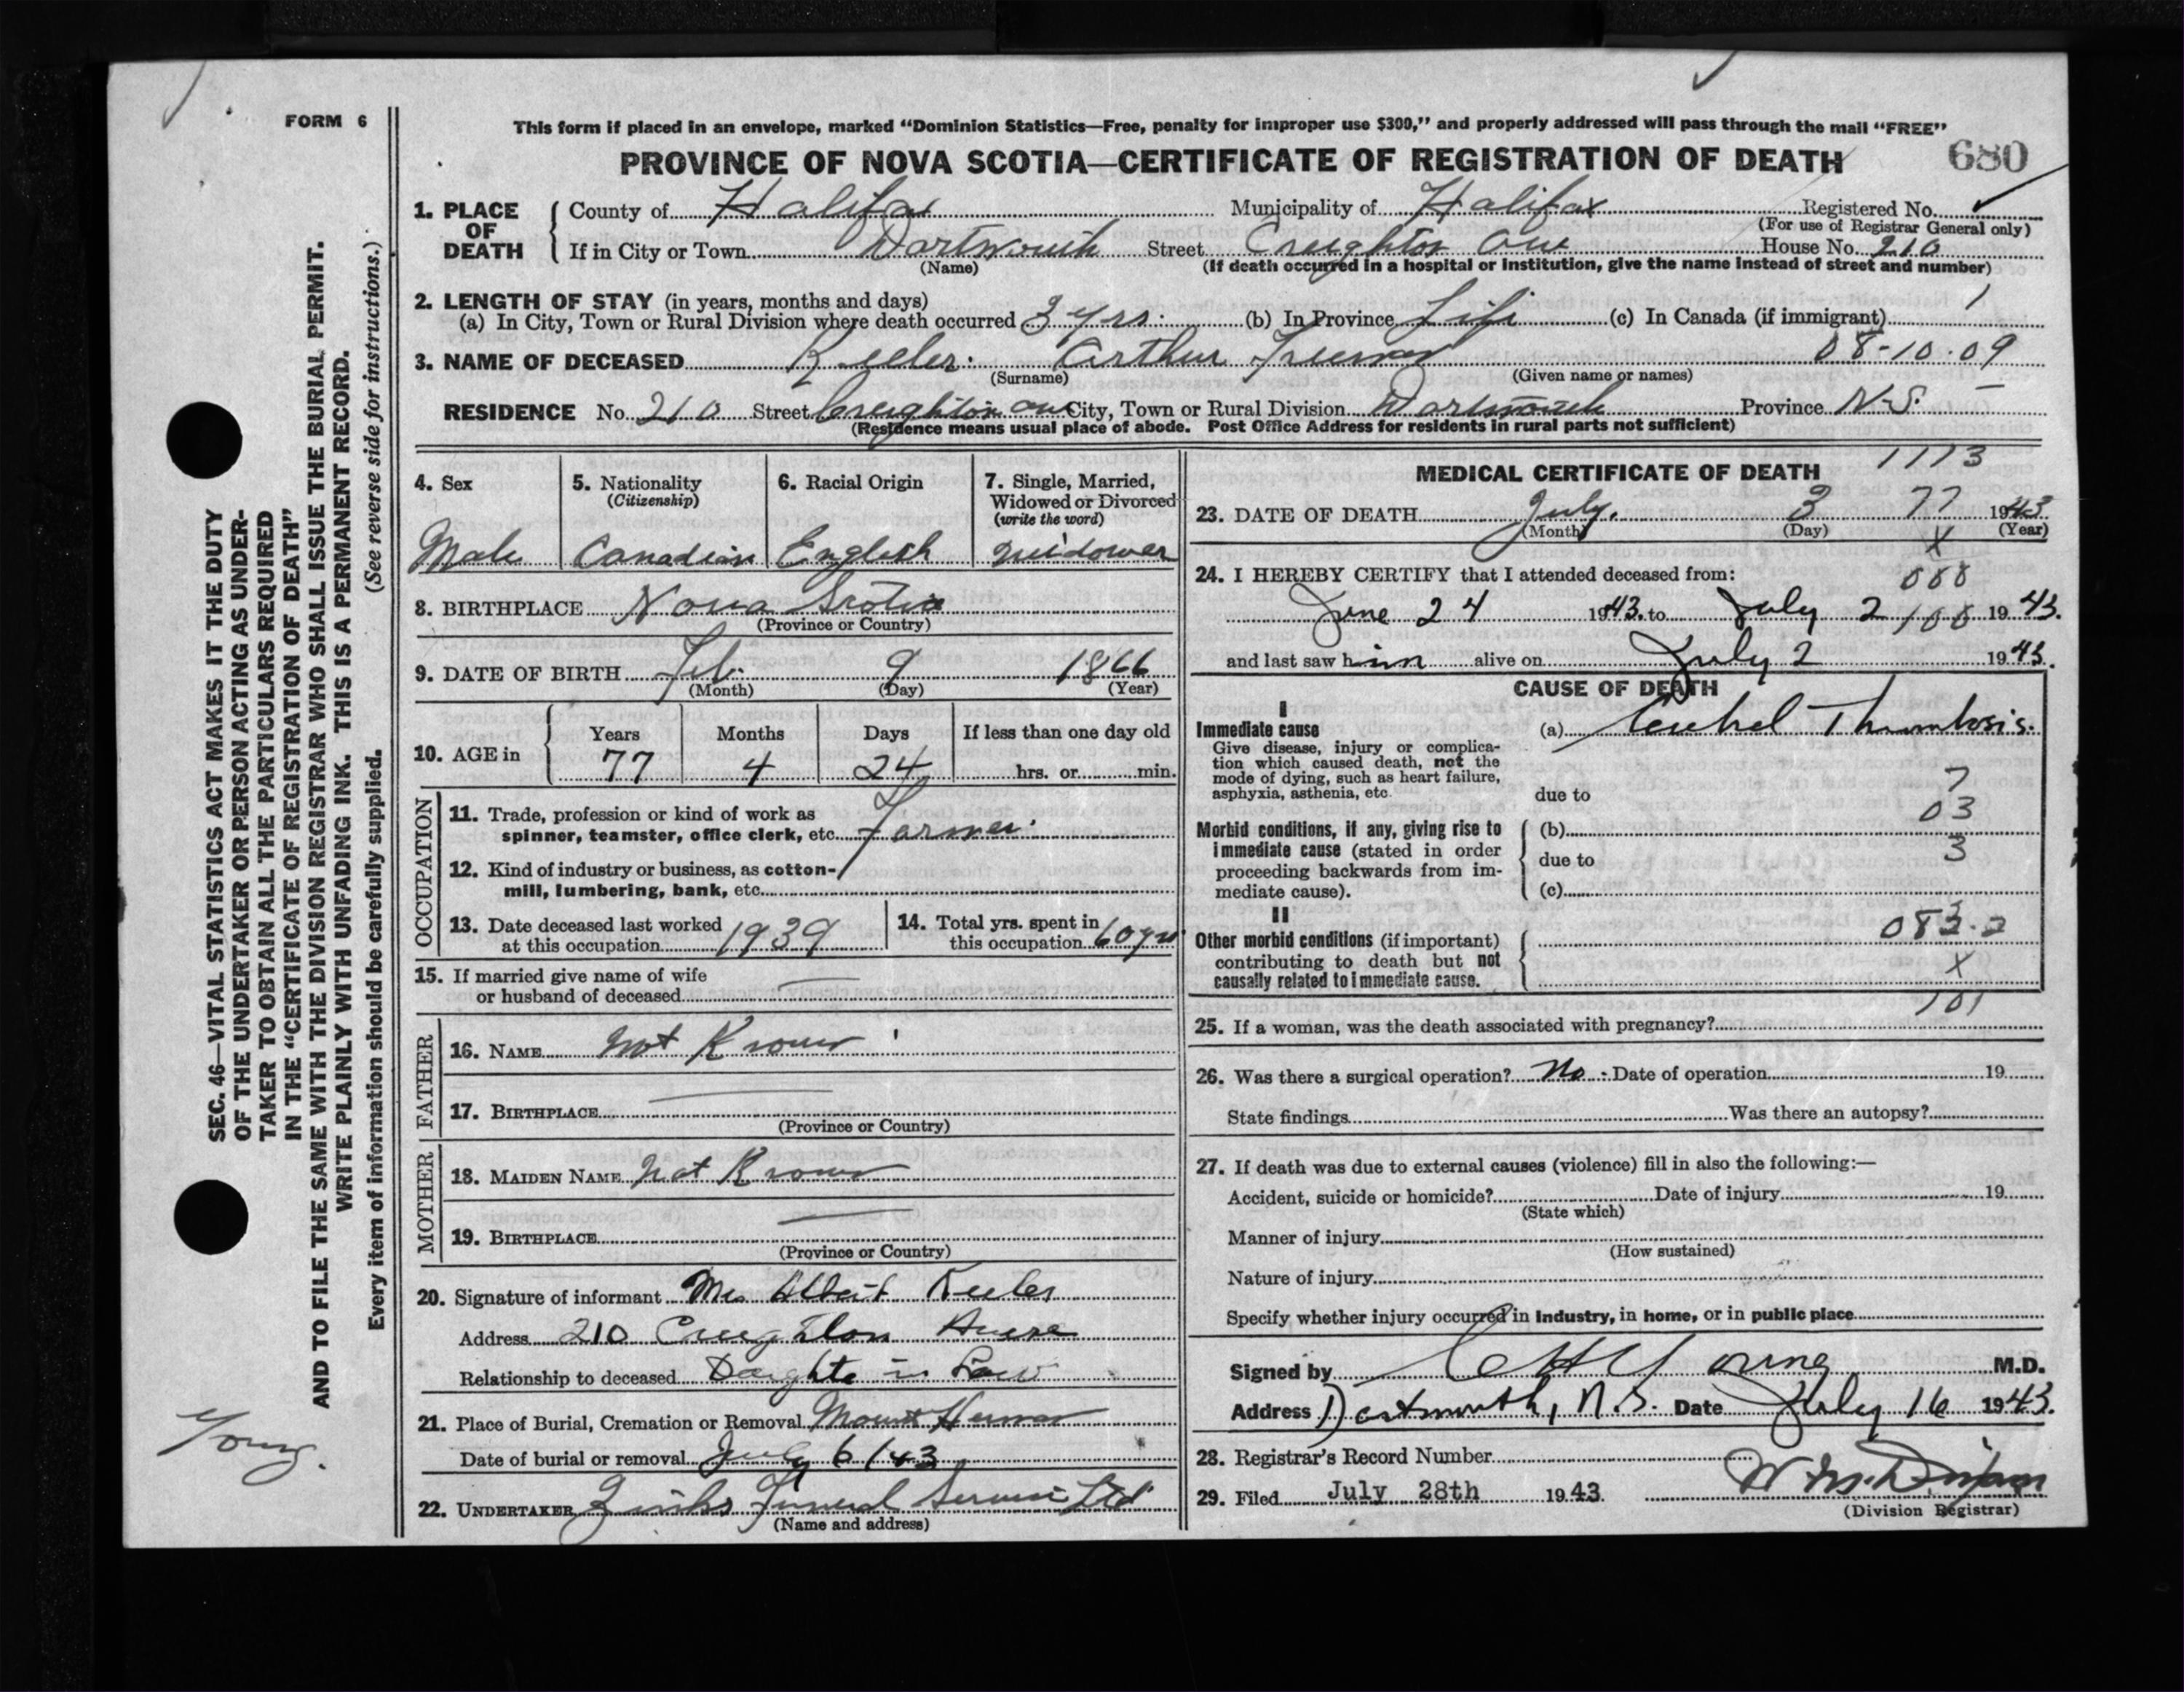 FORM 6
This form if placed in an envelope, marked "Dominion Statistics—Free, penalty for improper use $300," and properly addressed will pass through the mail "FREE"
PROVINCE OF NOVA SCOTIA—CERTIFICATE OF REGISTRATION OF DEATH 680
1. PLACE OF DEATH County of Halifax Municipality of Halifax Registered No.
(For use of Registrar General only)
If in City or Town Dartmouth Street Creighton Ave House No. 210
(Name) (If death occurred in a hospital or institution, give the name instead of street and number)
2. LENGTH OF STAY (in years, months and days) 1
(a) In City, Town or Rural Division where death occurred 3 yrs. (b) In Province Life (c) In Canada (if immigrant)
3. NAME OF DECEASED Keeler: Arthur Freeman 08-10-09
(Surname) (Given name or names)
RESIDENCE No. 210 Street Creighton ave City, Town or Rural Division Dartmouth Province N.S.
(Residence means usual place of abode. Post Office Address for residents in rural parts not sufficient)
4. Sex 5. Nationality (Citizenship) 6. Racial Origin 7. Single, Married, Widowed or Divorced (write the word)
Male Canadian English Widower
8. BIRTHPLACE Nova Scotia
(Province or Country)
9. DATE OF BIRTH Feb. 9 1866
(Month) (Day) (Year)
10. AGE in Years Months Days If less than one day old
77 4 24 hrs. or min.
OCCUPATION
11. Trade, profession or kind of work as
spinner, teamster, office clerk, etc. Farmer
12. Kind of industry or business, as cotton-
mill, lumbering, bank, etc.
13. Date deceased last worked
at this occupation 1939
14. Total yrs. spent in
this occupation 60 yrs
15. If married give name of wife
or husband of deceased —
FATHER
16. NAME Not Known
17. BIRTHPLACE —
(Province or Country)
MOTHER
18. MAIDEN NAME Not Known
19. BIRTHPLACE —
(Province or Country)
20. Signature of informant Mrs Albert Keeler
Address 210 Creighton Avenue
Relationship to deceased Daughter in Law
21. Place of Burial, Cremation or Removal Mount Hermon
Date of burial or removal July 6/43
22. UNDERTAKER Zinks Funeral Service Ltd
(Name and address)
MEDICAL CERTIFICATE OF DEATH 1113
23. DATE OF DEATH July. 3 77 1943
(Month) (Day) (Year)
X
24. I HEREBY CERTIFY that I attended deceased from: 000
June 24 1943 to July 2 100 1943.
and last saw him alive on July 2 1943.
CAUSE OF DEATH
I
Immediate cause (a) Cerebral Thrombosis.
Give disease, injury or complica-
tion which caused death, not the
mode of dying, such as heart failure,
asphyxia, asthenia, etc. due to 7
03
Morbid conditions, if any, giving rise to (b)
immediate cause (stated in order due to 3
proceeding backwards from im-
mediate cause). (c)
II
Other morbid conditions (if important)
contributing to death but not X
causally related to immediate cause.
101
25. If a woman, was the death associated with pregnancy?
26. Was there a surgical operation? No - Date of operation 19
State findings Was there an autopsy?
27. If death was due to external causes (violence) fill in also the following:—
Accident, suicide or homicide? Date of injury 19
(State which)
Manner of injury
(How sustained)
Nature of injury
Specify whether injury occurred in Industry, in home, or in public place
Signed by Young M.D.
Address Dartmouth, N.S. Date July 16 1943.
28. Registrar's Record Number
29. Filed July 28th 1943.
(Division Registrar)
SEC. 46—VITAL STATISTICS ACT MAKES IT THE DUTY
OF THE UNDERTAKER OR PERSON ACTING AS UNDER-
TAKER TO OBTAIN ALL THE PARTICULARS REQUIRED
IN THE "CERTIFICATE OF REGISTRATION OF DEATH"
AND TO FILE THE SAME WITH THE DIVISION REGISTRAR WHO SHALL ISSUE THE BURIAL PERMIT.
WRITE PLAINLY WITH UNFADING INK. THIS IS A PERMANENT RECORD.
Every item of information should be carefully supplied. (See reverse side for instructions.)
Young.